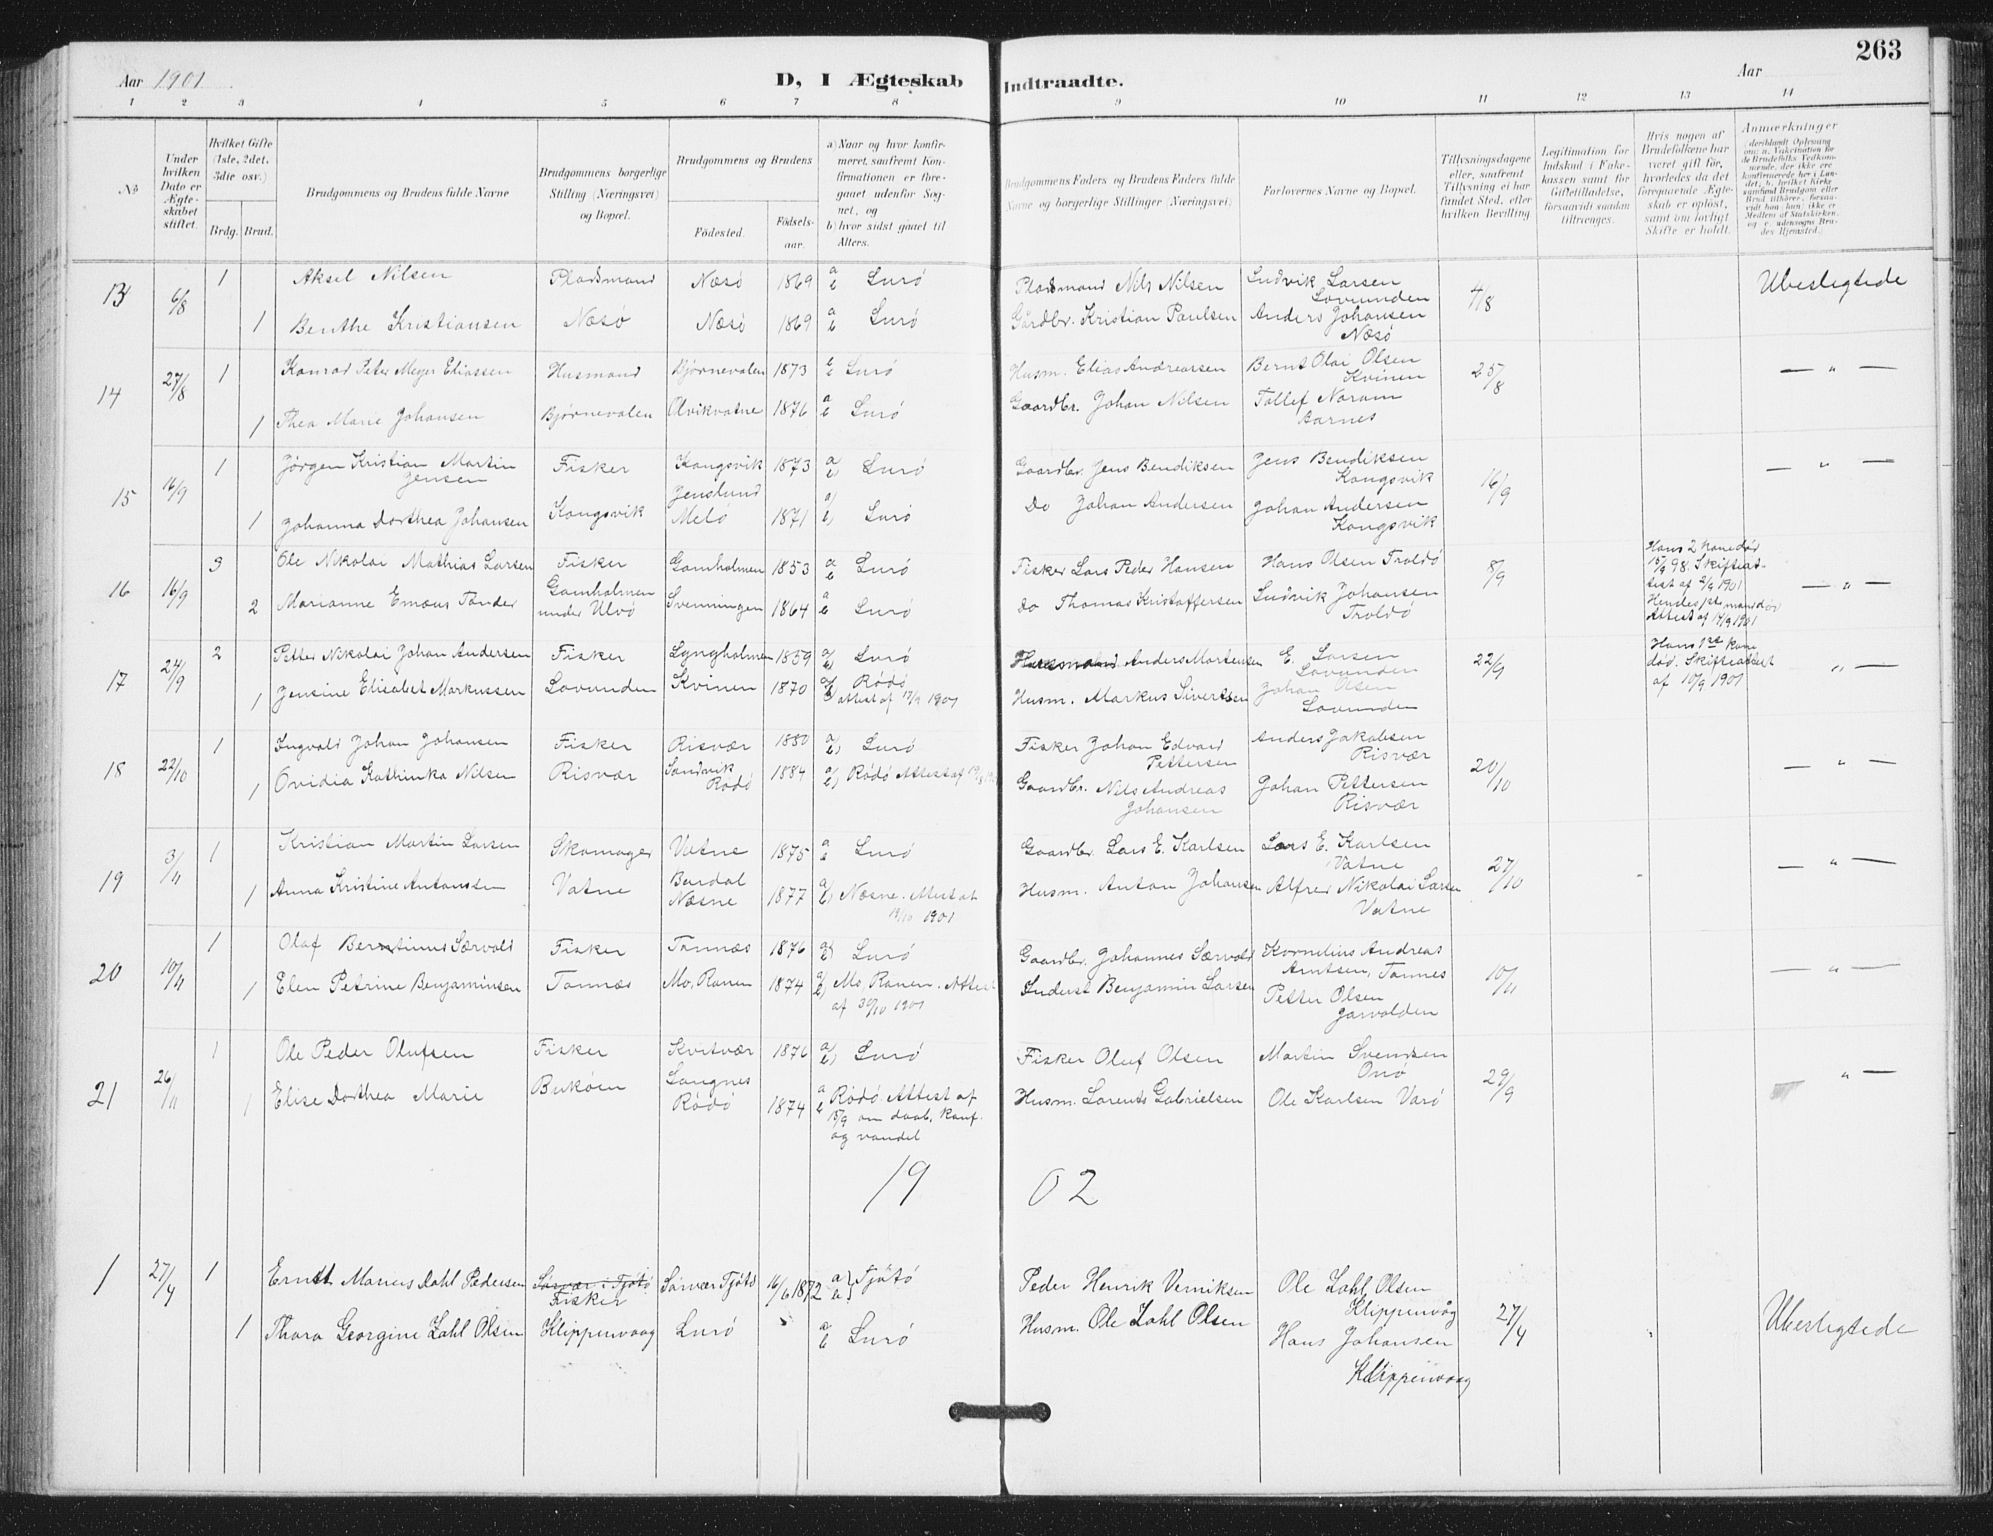 263
Aar 1901 D, I Ægteskab Indtraadte. Aar
1 2 3 4 5 6 7 8 9 10 11 12 13 14
No
Under hvilken Dato er Ægteskabet stiftet.
Hvilket Gifte (1ste, 2det, 3die osv.)
Brdg. Brud.
Brudgommens og Brudens fulde Navne
Brudgommens borgerlige Stilling (Næringsvei) og Bopæl.
Brudgommens og Brudens
Fødested. Fødselsaar.
a) Naar og hvor konfirmeret, saafremt Konfirmationen er foregaaet udenfor Sognet, og
b) hvor sidst gaaet til Alters.
Brudgommens Faders og Brudens Faders fulde Navne og borgerlige Stillinger (Næringsvei)
Forlovernes Navne og Bopæl.
Tillysningsdagene eller, saafremt Tillysning ei har fundet Sted, efter hvilken Bevilling
Legitimation for Indskud i Enkekassen samt for Giftetilladelse, forsaavidt saadan tiltrænges.
Hvis nogen af Brudefolkene har været gift før, hvorledes da det foregaaende Ægteskab er opløst, samt om lovligt Skifte er holdt.
Anmærkninger
13 6/8 1 Aksel Nilsen Pladsmand Næsø 1869 a b Lurø Pladsmand Nils Nilsen Ludvik Larsen Lovunden 4/8 Ubeslegtede
1 Benthe Kristiansen Næsø Næsø 1869 a b Lurø Gårdbr. Kristian Paulsen Anders Johansen Næsø
14 27/8 1 Konrad Peter Meyer Eliassen Husmand Bjørnevalen 1873 Lurø Husm. Elias Andreassen Bernt Olai Olsen Kvinen 25/8 — " —
1 Thea Marie Johansen Bjørnevalen Olvikvatne 1876 a b Lurø Gaardbr. Johan Nilsen Tollef Aarnes
15 16/9 1 Jørgen Kristian Martin Jensen Fisker Kongsvik 1873 a b Lurø Gaardbr. Jens Bendiksen Jens Bendiksen Kongsvik 16/9 — " —
1 Johanna Dorthea Johansen Kongsvik Jenslund Melø 1871 a) b) Lurø Do Johan Andersen Johan Andersen Kongsvik
16 16/9 3 Ole Nikolai Mathias Larsen Fisker Gamholmen 1853 a b Lurø Fisker Lars Peder Hansen Hans Olsen Troldø 8/9 Hans 2 kone død 15/9 98. Skifteattest af 2/9 1901 — " —
2 Marianne Emæus Tønder Gamholmen under Ulvø Svenningen 1864 a b Lurø do Thomas Kristoffersen Ludvik Johansen Troldø Hendes 1ste mand død Attest af 14/9 1901
17 24/9 2 Petter Nikolai Johan Andersen Fisker Lyngholmen 1859 a) b) Lurø Husmand Anders Mortensen E. Larsen Lovunden 22/9 Hans 1ste kone død. Skifteattest af 10/9 1901 " —
1 Jensine Elisabet Markussen Lovunden Kvinen 1870 Rødø attest af 17/9 1901 Husm. Markus Sivertsen Johan Olsen Lovunden
18 22/10 1 Ingvald Johan Johansen Fisker Risvær 1880 a) b) Lurø Fisker Johan Edvard Pettersen Anders Jakobsen Risvær 20/10 — " —
1 Ovidia Kathinka Nilsen Risvær Sandvik Rødø 1884 a) b) Rødø Attest af Gaardbr. Nils Andreas Johansen Johan Pettersen Risvær
19 3/11 1 Kristian Martin Larsen Skomager Vatne 1875 a b Lurø Gaardbr. Lars E. Karlsen Lars E. Karlsen Vatne 27/10 — " —
1 Anna Kristine Antonssen Vatne Bardal Næsne 1877 Næsne. Attest af 19/10 1901 Husm. Anton Johansen Alfred Nikolai Larsen Vatne
20 10/11 1 Olaf Berntinus Særvold Fisker Tonnæs 1876 Lurø Gaardbr. Johannes Særvold Kornelius Andreas Arntsen, Tonnes 10/11 — " —
1 Elen Petrine Benjaminsen Tonnæs Mo, Ranen 1874 a) b) Mo, Ranen. Attest af 30/10 1901 Inderst Benjamin Larsen Petter Olsen
21 26/11 1 Ole Peder Olufsen Fisker Kvitvær 1876 a) b) Lurø Fisker Oluf Olsen Martin Svendsen Onø 29/9 " —
1 Elise Dorthea Marie Bukøen Langnes Rødø 1874 a b Rødø Attest af 15/9 om daab, konf. og vandel Husm. Lorents Gabrielsen Ole Karlsen Varø
1902
1 27/4 1 Ernst Marius Dahl Pedersen Sørvær i Tjøtø Fisker Sørvær Tjøtø 16/6 1872 a b } Tjøtø Peder Henrik Veniksen Ole Zahl Olsen Klippenvåg 27/4 Ubeslegtede
1 Thora Georgine Zahl Olsen Klippenvaag Lurø a b Lurø Husm. Ole Zahl Olsen Hans Johansen Klippenvaag